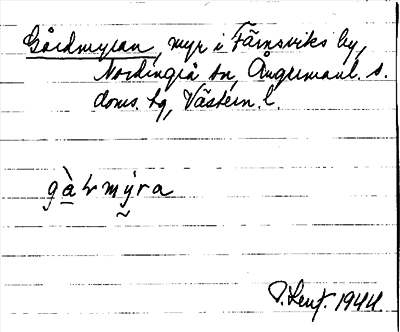 Gårdmyran, myr i Färnsviks by,
Nordingrå sn, Ångermanl. s.
doms. hg, Västern. l.
gàrmýra
P. Lenf. 1944